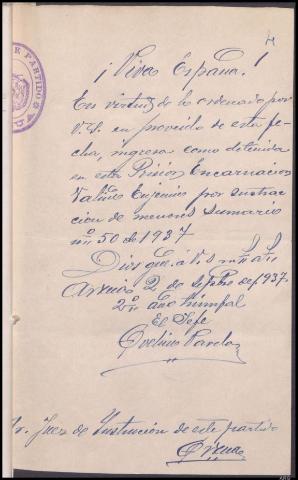 ¡Viva España!
En virtud de lo ordenado por
V.S. en proveido de esta fe-
cha, ingresa como detenida
en esta Prisión Encarnación
Valiño Eugenio por sustrac-
ción de menores sumario
nº 50 de 1937
Dios gue. á V.S. m. a.
Arzua 2 de Septbre de 1937
2º año triunfal
El Jefe
Sr. Juez de Instrucción de este partido
Arzua
E PARTIDO